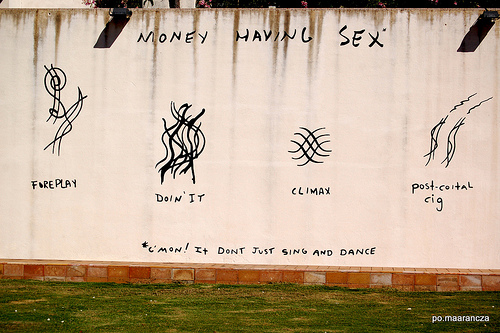 MONEY HAVING SEX*
FOREPLAY
DOIN' IT
CLIMAX
post-coital
cig
*c'mon! It DONT JUST SING AND DANCE
po.maarancza